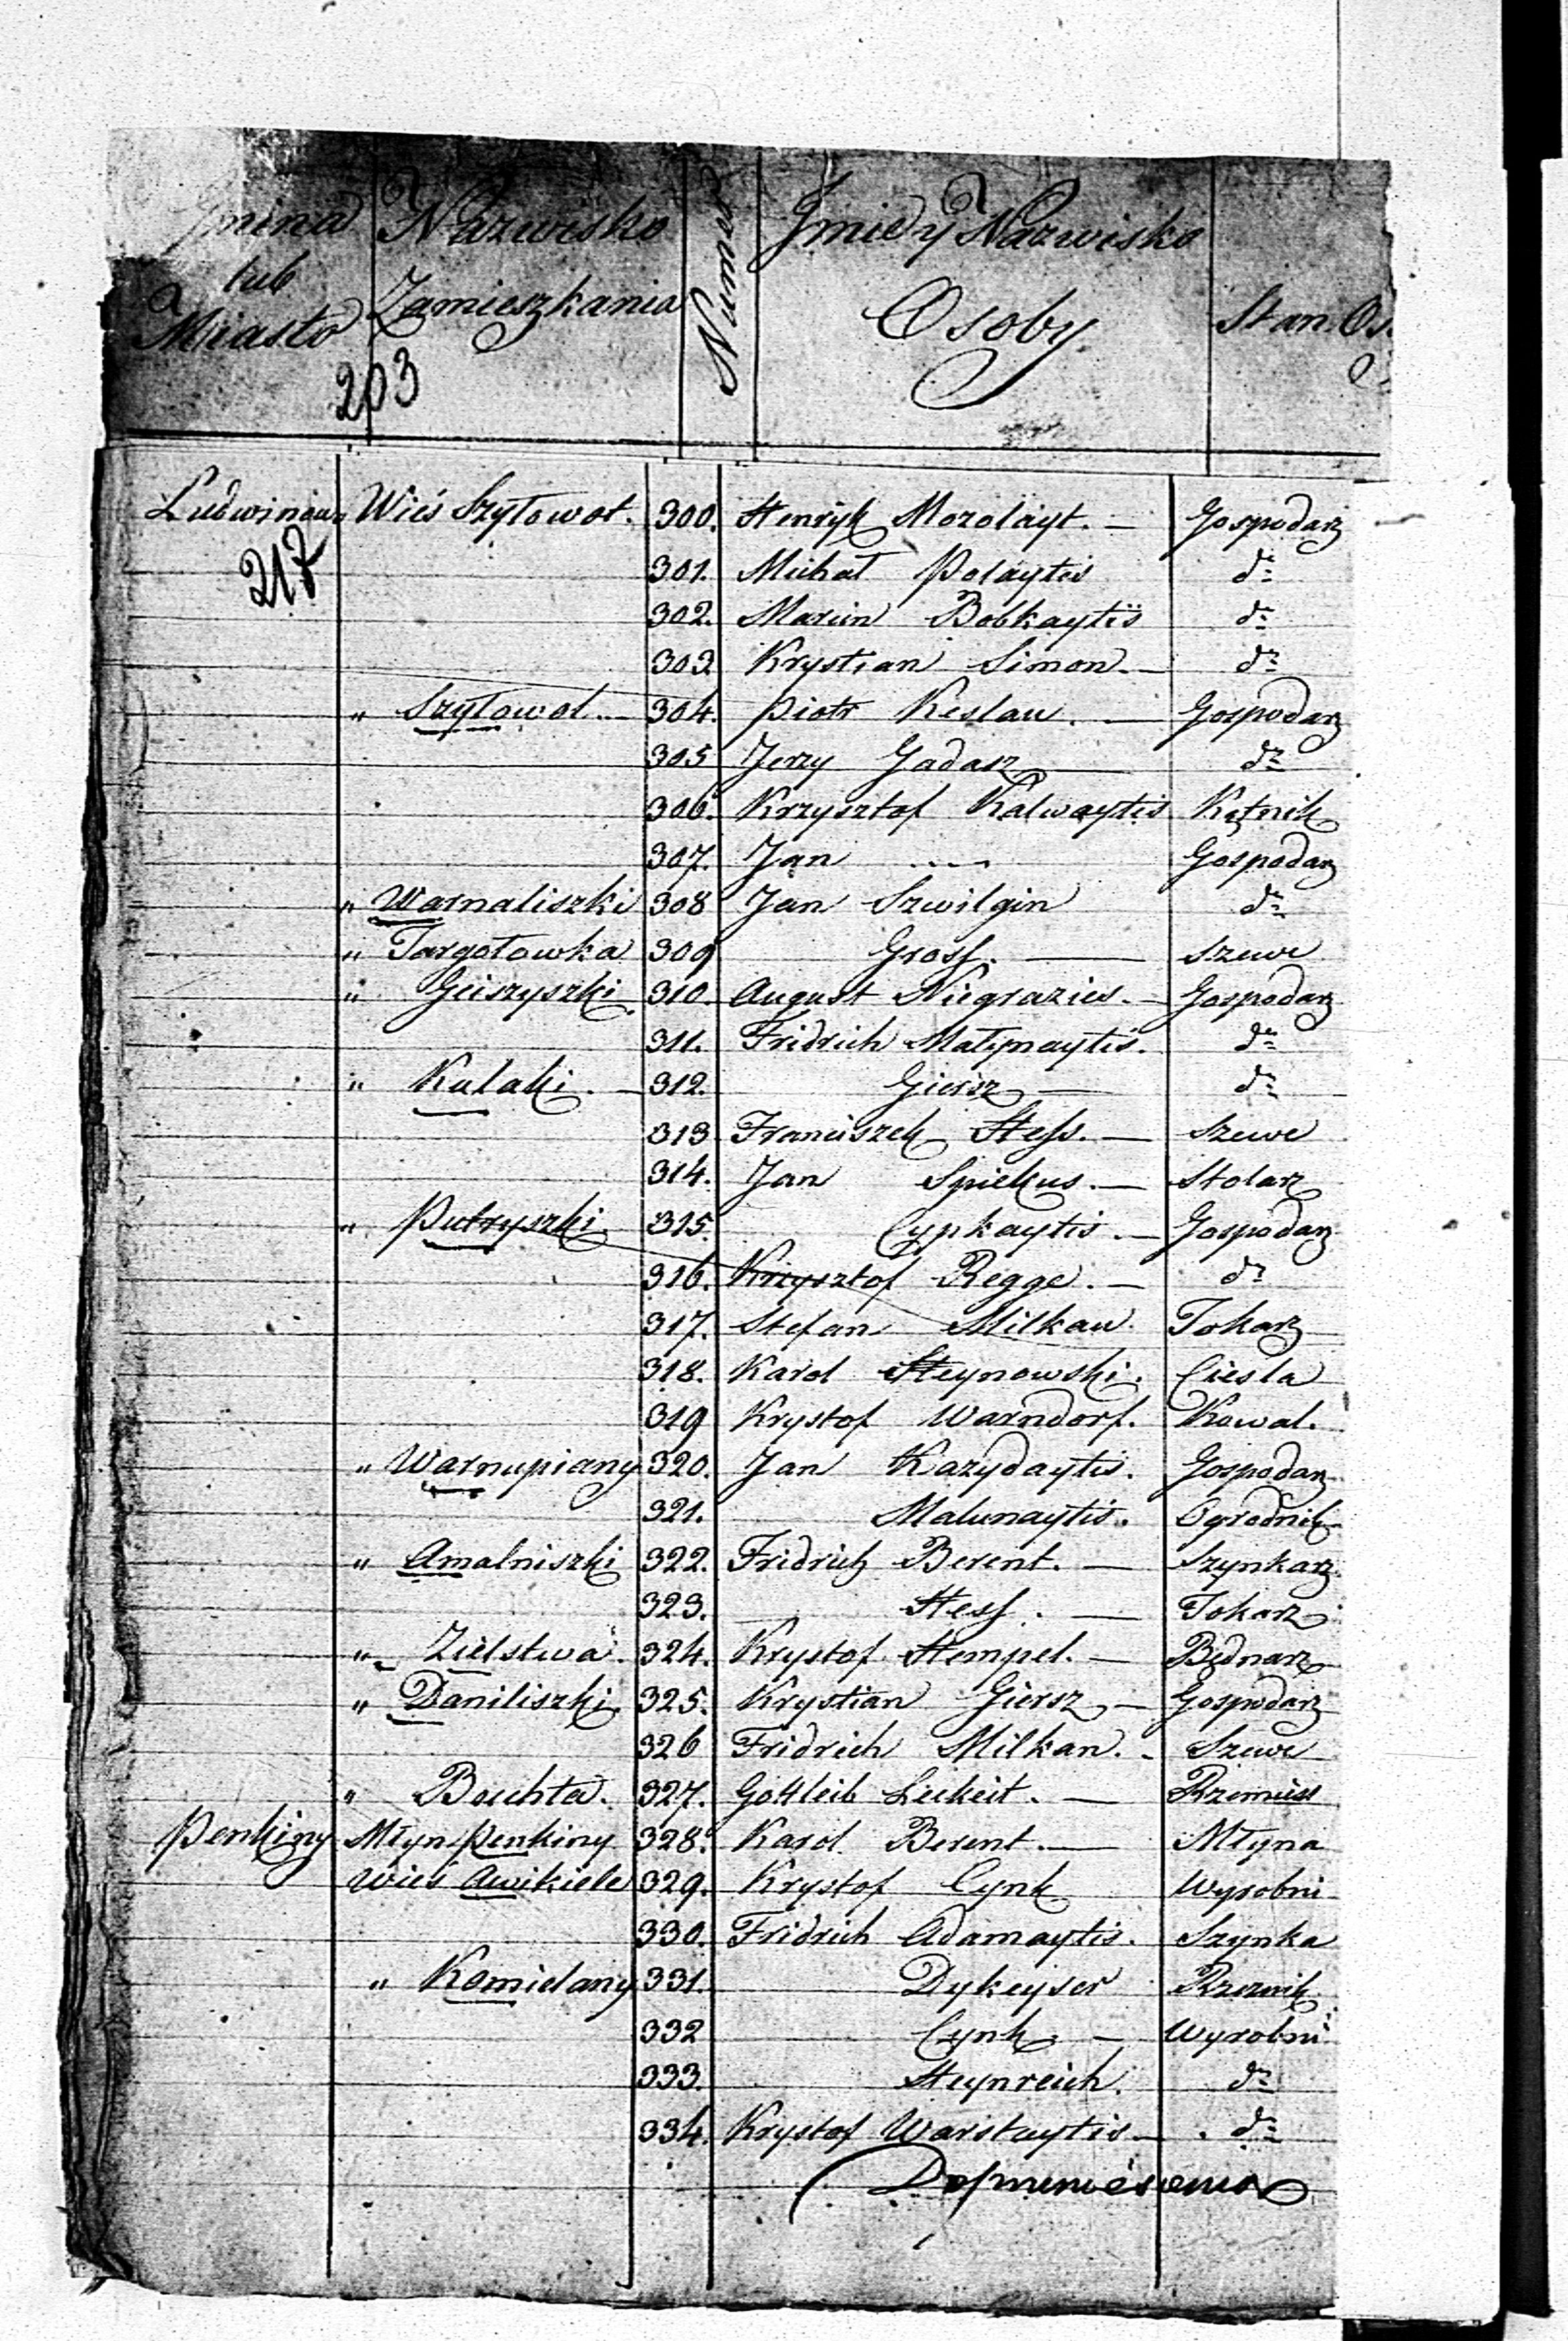 Gmina Nazwisko Numer Jmie y Nazwisko
lub Zamieszkania Osoby Stan Os
Miasto
203
Ludwinow Wieś Szyłowot. 300. Henryk Mozolayt. — Gospodarz
217
301. Michał Polaytis dº
302. Marcin Bobkaytis dº
303. Krystian Simon. — dº
" Szyłowot. — 304. Piotr Keslau. — Gospodarz
305 Jerzy Gadasz — dº
306. Krzysztof Kalwaytis Kątnik
307. Jan .... Gospodarz
" Warnaliszki 308 Jan Szwilgin dº
" Targotowka 309 Gross. — Szewc
" Geiszyszki 310. August Niegrazies. — Gospodarz
311. Fridrich Matynaytis. dº
" Kulaki. — 312. Giersz — dº
313 Franciszek Hess. — Szewc
314. Jan Spickus. — Stolarz
" Putryszki. 315. Cypkaytis. — Gospodarz
316. Krzysztof Regge. — dº
317. Stefan Milkau. Tokarz
318. Karol Steynowski. Ciesla
319 Krystof Warndorf. Kowal.
" Warnupiany 320. Jan Kazydaytis. Gospodarz
321. Malunaytis. Ogrodnik
" Amalniszki 322. Fridrich Berent. — Szynkarz
323. Hess. — Tokarz
" Zielstwa. 324. Krystof Hempel. — Bednarz
" Daniliszki 325. Krystian Giersz — Gospodarz
326 Fridrich Milkan. - Szewc
" Buchta. 327. Gottleib Leckeit. — Rzemiesl
Penkiny Młyn Penkiny 328. Karol Berent. — Młyna
Wieś Awikiele 329. Krystof Cynk Wyrobni
330. Fridrich Adamaytis. Szynka
" Komielany 331. Dykeyser Rzeznik
332 Cynk. — Wyrobni
333. Steynreich. dº
334. Krystof Warstaytis — dº